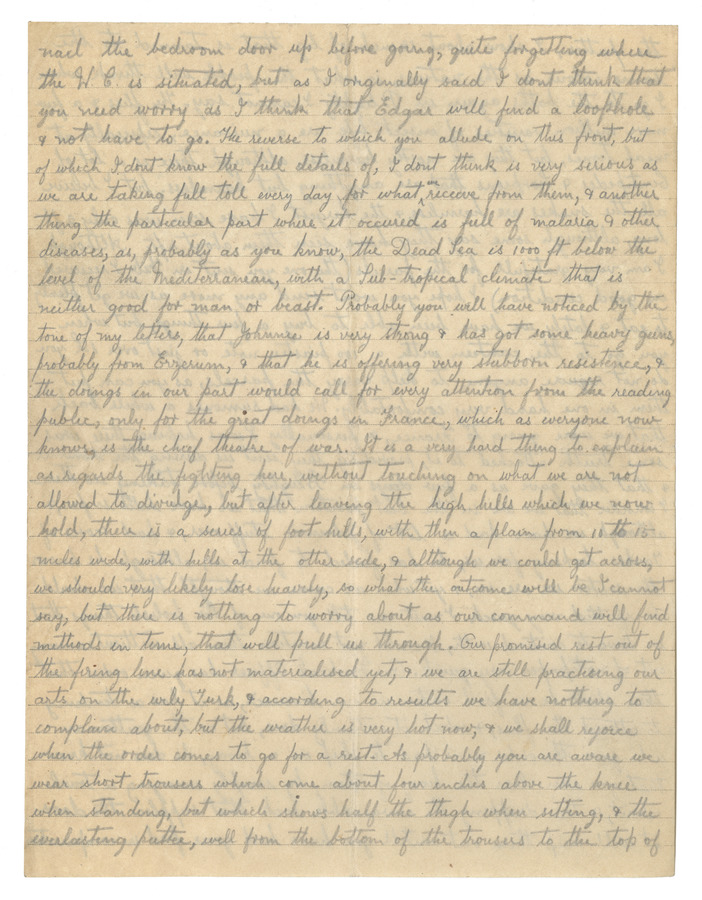 nail the bedroom door up before going, quite forgetting where
the W.C. is situated, but as I originally said I dont think that
you need worry as I think that Edgar will find a loophole
& not have to go. The reverse to which you allude on this front, but
of which I dont know the full details of, I dont think is very serious as
we are taking full toll every day for what we receive from them, & another
thing the particular part where it occured is full of malaria & other
diseases, as, probably as you know, the Dead Sea is 1000 ft below the
level of the Mediterranean, with a Sub-tropical climate that is
neither good for man or beast. Probably you will have noticed by the
tone of my letters, that Johnnie is very strong & has got some heavy guns,
probably from Erzerum, & that he is offering very stubborn resistence, &
the doings in our part would call for every attention from the reading
public, only for the great doings in France, which as everyone now
knows, is the chief theatre of war. It is a very hard thing to explain
as regards the fighting here, without touching on what we are not
allowed to divulge, but after leaving the high hills which we now
hold, there is a series of foot hills, with then a plain from 10 to 15
miles wide, with hills at the other side, & although we could get across,
we should very likely lose heavily, so what the outcome will be I cannot
say, but there is nothing to worry about as our command will find
methods in time, that will pull us through. Our promised rest out of
the firing line has not materialised yet, & we are still practising our
arts on the wily Turk, & according to results we have nothing to
complain about, but the weather is very hot now, & we shall rejoice
when the order comes to go for a rest. As probably you are aware we
wear short trousers which come about four inches above the knee
when standing, but which shows half the thigh when sitting, & the
everlasting puttee, well from the bottom of the trousers to the top of